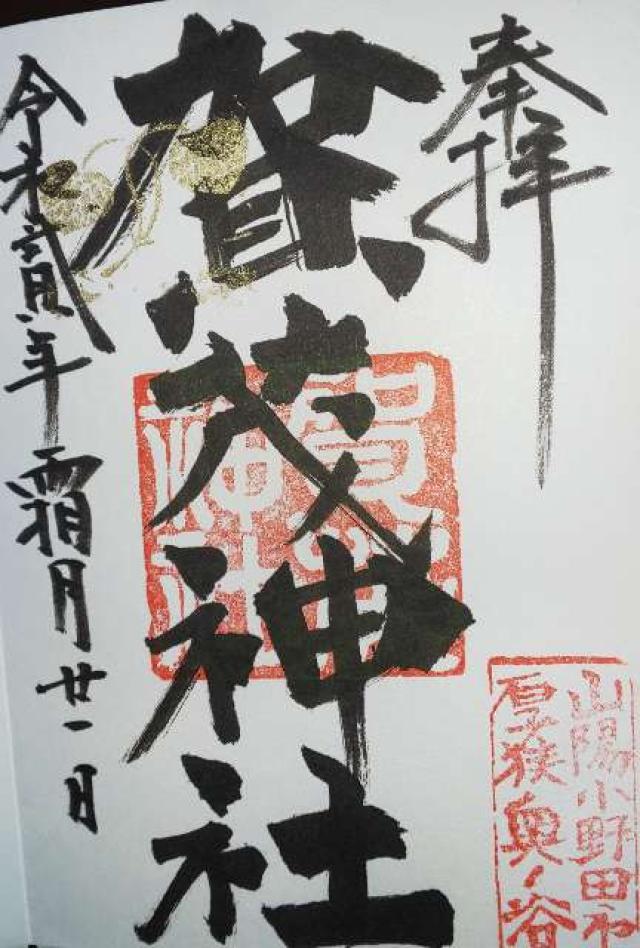 奉拝
賀茂神社
賀茂神社
令和貳年霜月廿一日
山陽小野田市
厚狭奥ノ谷